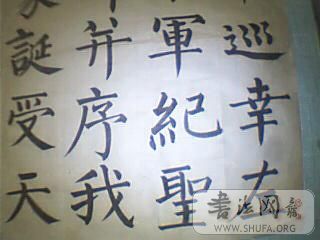 巡幸左
軍紀聖
并序我
誕受天
書法网
WWW.SHUFA.ORG